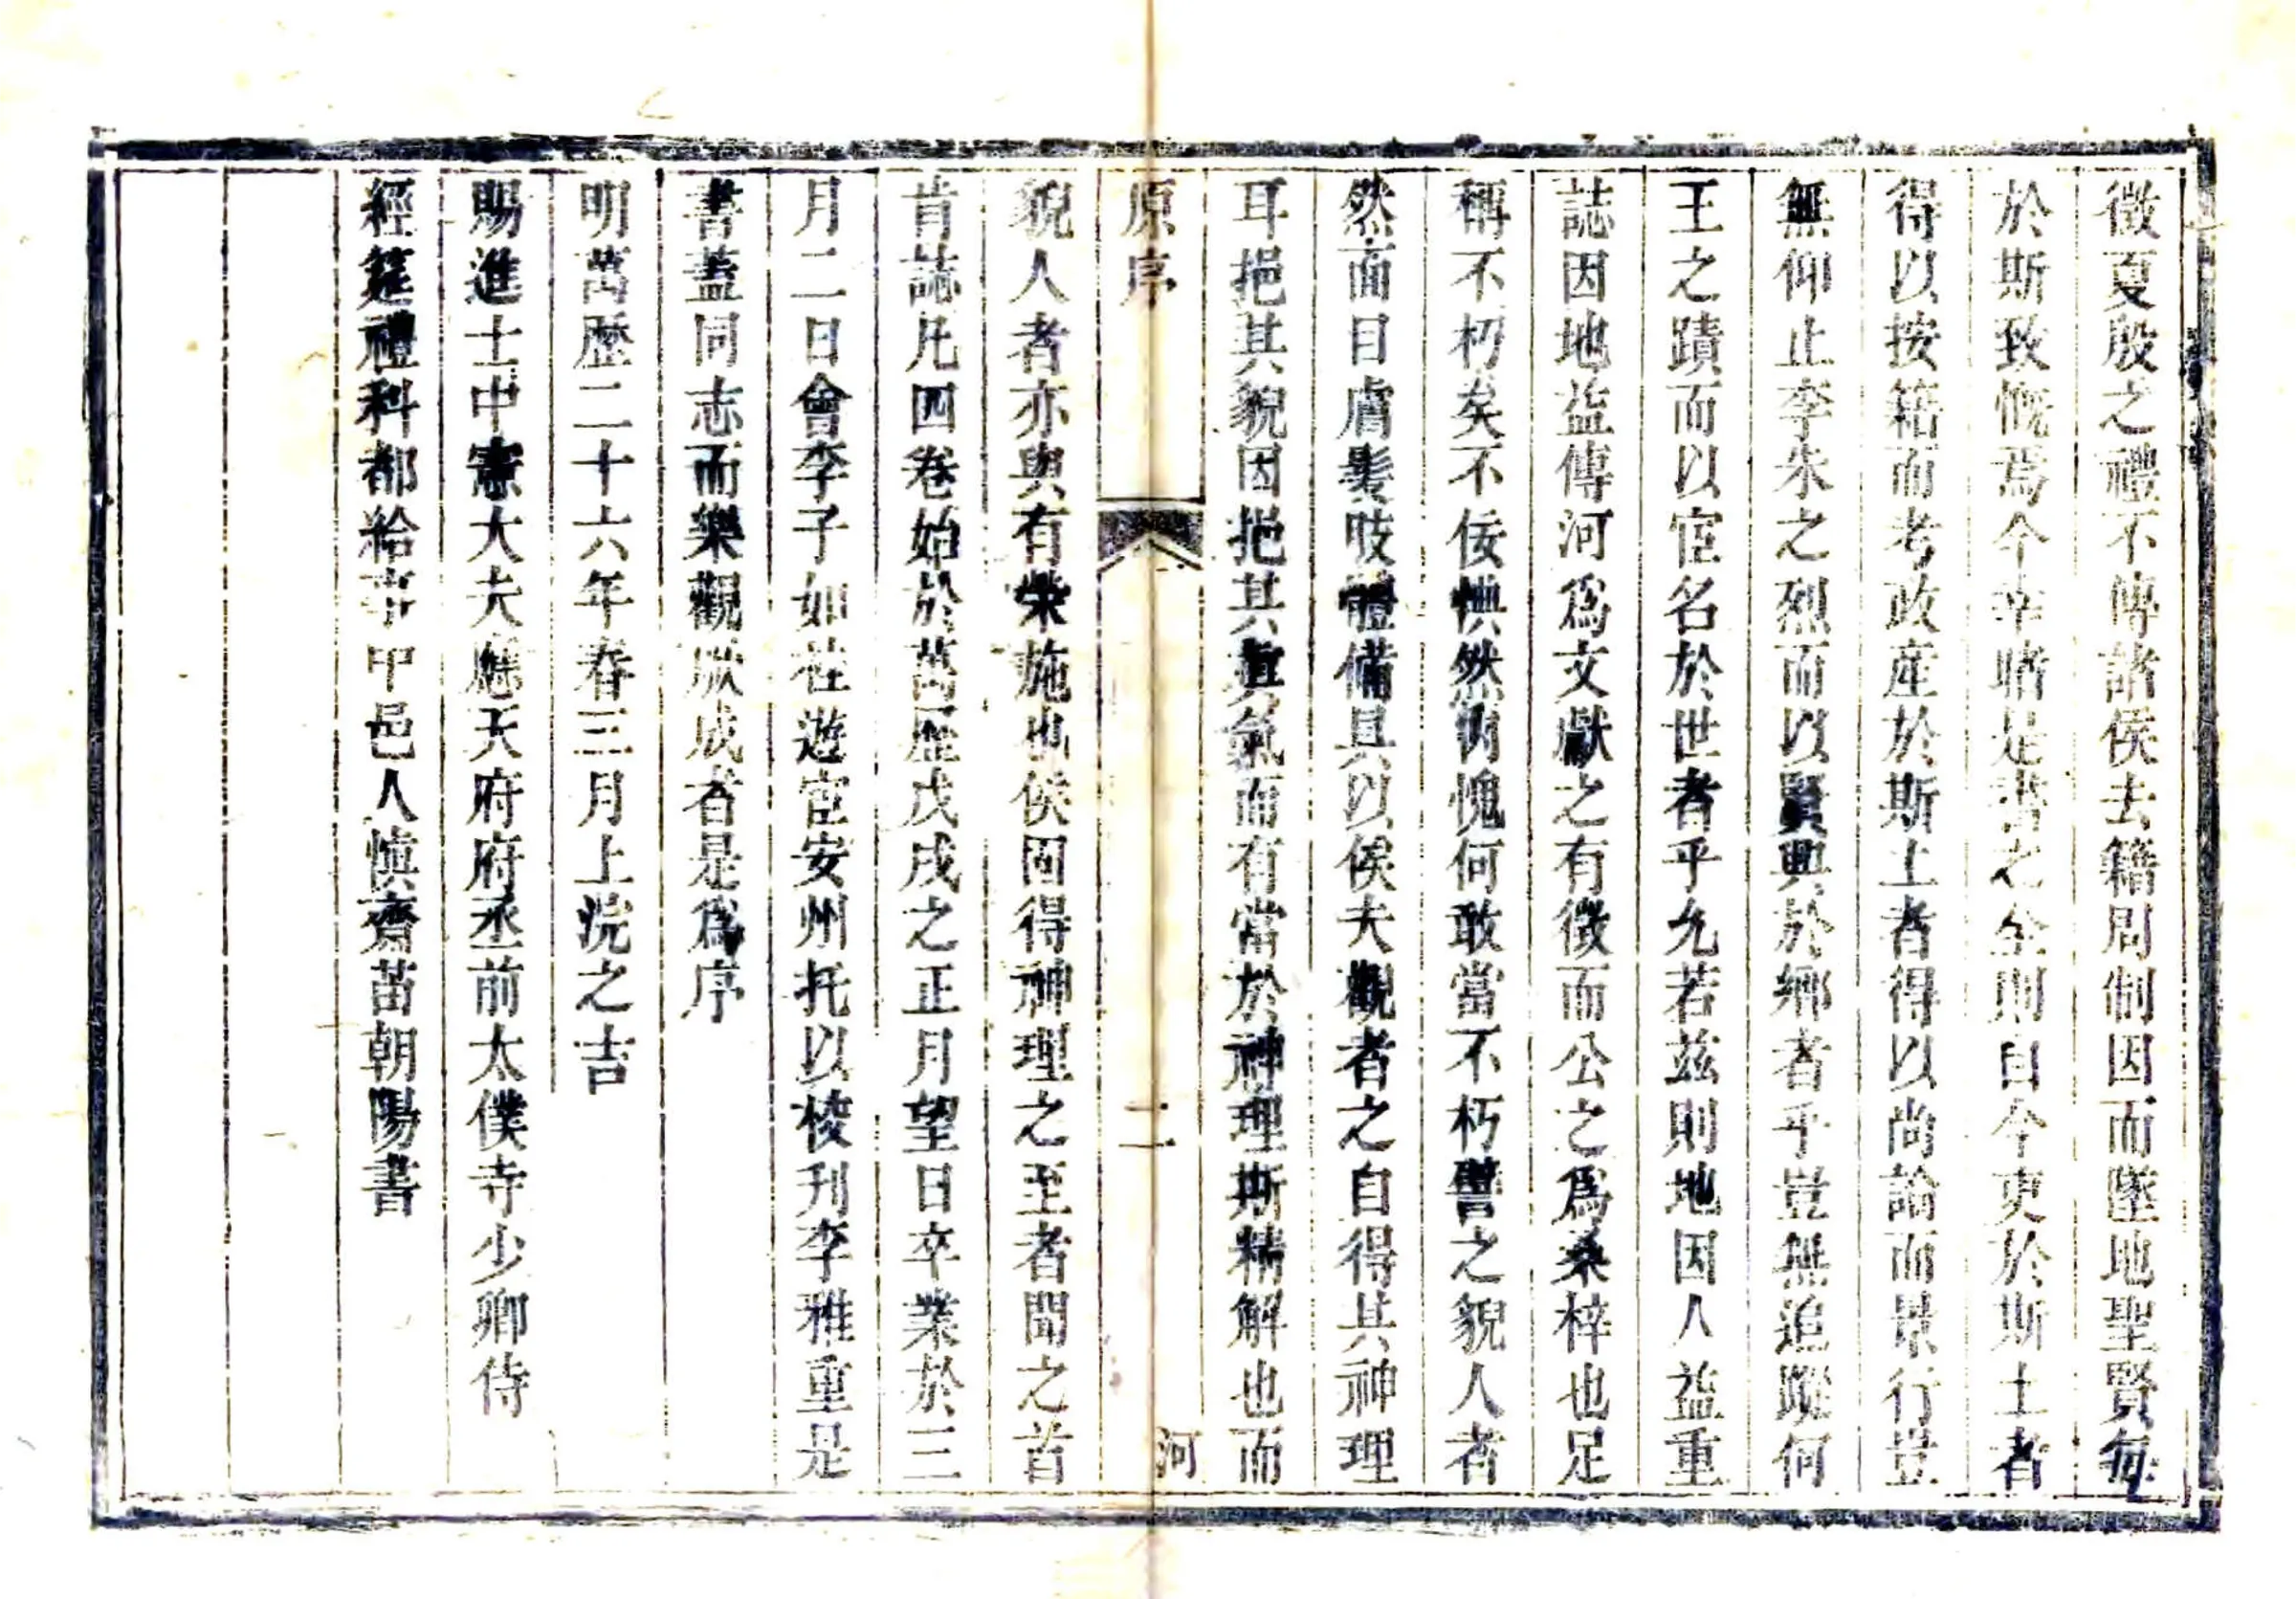 徵夏殷之禮不傳諸侯去籍周制因而墜地聖賢每
於斯致慨焉今幸睹是書之全則自今吏於斯土者
得以按籍而考政產於斯土者得以尚論而景行豈
無仰止李朱之烈而以賢興於鄉者乎豈無追蹤何
王之蹟而以宦名於世者乎允若茲則地因人益重
誌因地益傳河為文獻之有徵而公之為桑梓也足
稱不朽矣不佞惧然內愧何敢當不朽譬之貌人者
然面目膚髮肢體備具以俟夫觀者之自得其神理
耳挹其貌因挹其真氣而有當於神理斯精解也而
原序
二
河
貌人者亦與有榮施也侯固得神理之至者聞之首
肯誌凡四卷始於萬歷戊戌之正月望日卒業於三
月二日會李子如社遊宦安州托以梭刊李雅重是
書蓋同志而樂觀厥成者是為序
明萬歷二十六年春三月上浣之吉
賜進士中憲大夫應天府府丞前太僕寺少卿侍
經筵禮科都給事中邑人慎齋苗朝陽書